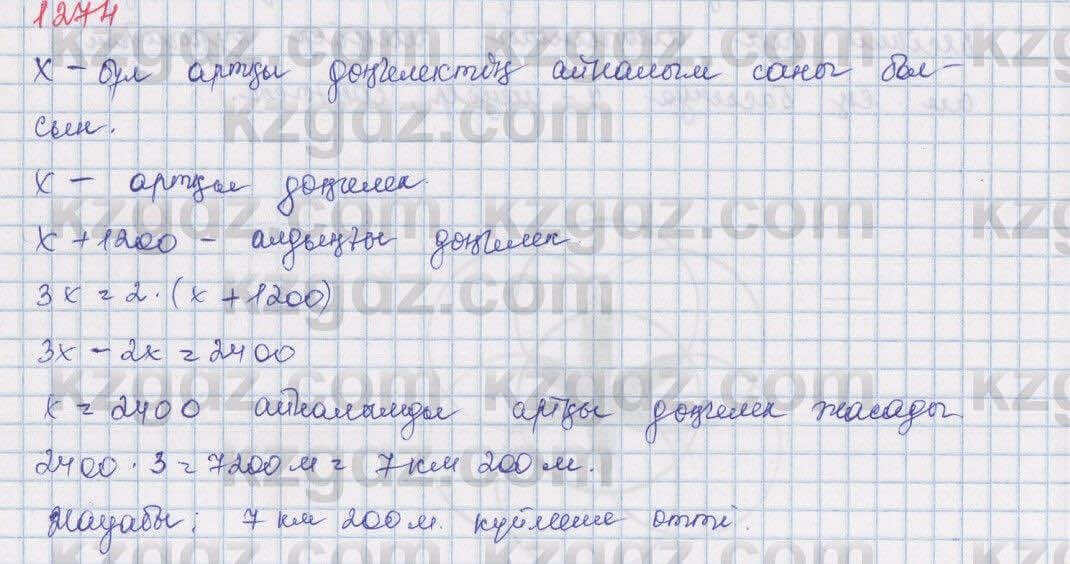 1274
x – бұл артқы доңғелектің айналым саны бол-
сын.
x – артқы доңғелек.
x + 1200 – алдыңғы доңғелек
3x = 2 · (x + 1200)
3x – 2x = 2400
x = 2400 айналымды артқы доңғелек жасады
2400 · 3 = 7200 м = 7 км 200 м.
Жауабы: 7 км 200 м. күймеше өтті.
kzgdz.com